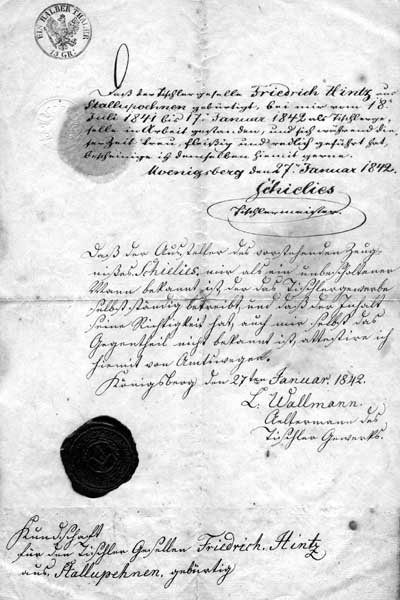 EIN HALBER THALER
15 GR:
Daß der Tischlergeselle Friedrich Hintz aus
Stallupoehnen gebürtigt, bei mir vom 18t
Juli 1841 bis 17t Januar 1842 als Tischlerge,
selle in Arbeit gestanden, und sich während die,
ser Zeit treu, fleißig und redlich geführt hat,
bescheinige ich demselben hiemit gerne.
Koenigsberg den 27t Januar 1842.
Schielies
Tischlermeister.
Daß der Aussteller des vorstehenden Zeug,
nißes Schielies, mir als ein unbescholtener
Mann bekannt ist, der das Tischlergewerbe
selbstständig betreibt, und daß der Inhalt
seine Richtigkeit hat, auch mir selbst das
Gegentheil nicht bekannt ist, attestire ich
hiemit von Amtswegen.
Königsberg den 27ten Januar 1842.
L. Wallmann.
Aeltermann des
Tischler Gewerks.
Kundschaft
für den Tischler Gesellen Friedrich Hintz
aus Stallupehnen, gebürtig